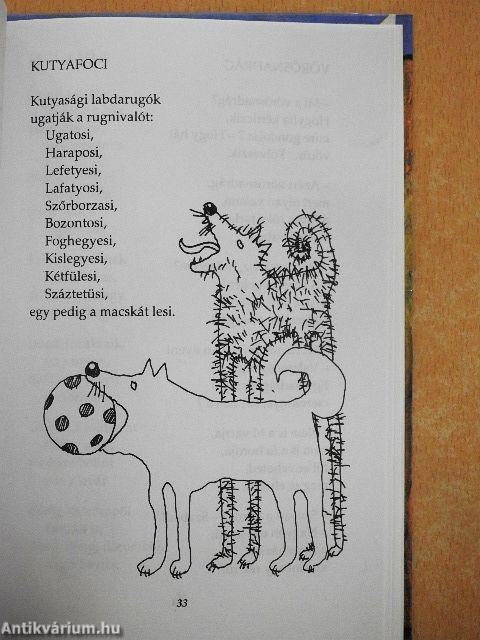 KUTYAFOCI
Kutyasági labdarugók
ugatják a rugnivalót:
Ugatosi,
Haraposi,
Lefetyesi,
Lafatyosi,
Szőrborzasi,
Bozontosi,
Foghegyesi,
Kislegyesi,
Kétfülesi,
Száztetűsi,
egy pedig a macskát lesi.
33
Antikvárium.hu